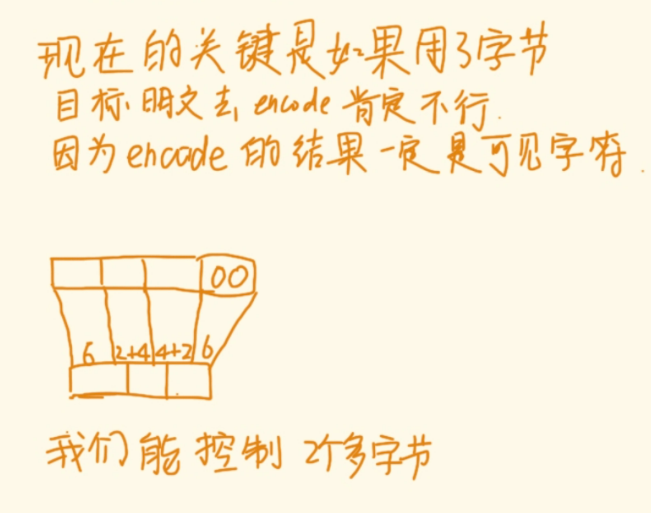 现在的关键是如果用3字节
目标明文去encode肯定不行.
因为encode的结果一定是可见字符.
00
6 2+4 4+2 6
我们能控制2个多字节